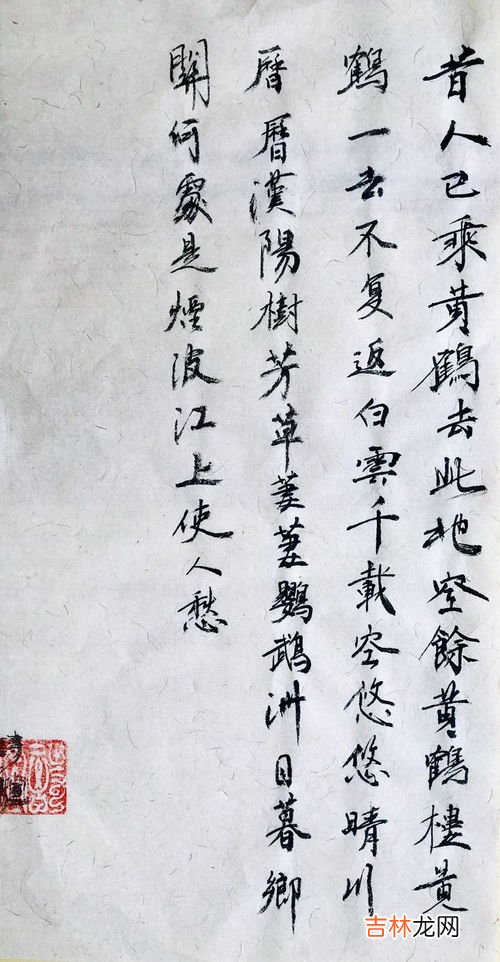 昔人已乘黄鶴去此地空餘黄鶴樓黄
鶴一去不复返白雲千載空悠悠晴川
曆曆漢陽樹芳草萋萋鸚鵡洲日暮鄉
關何處是煙波江上使人愁
吉林龙网